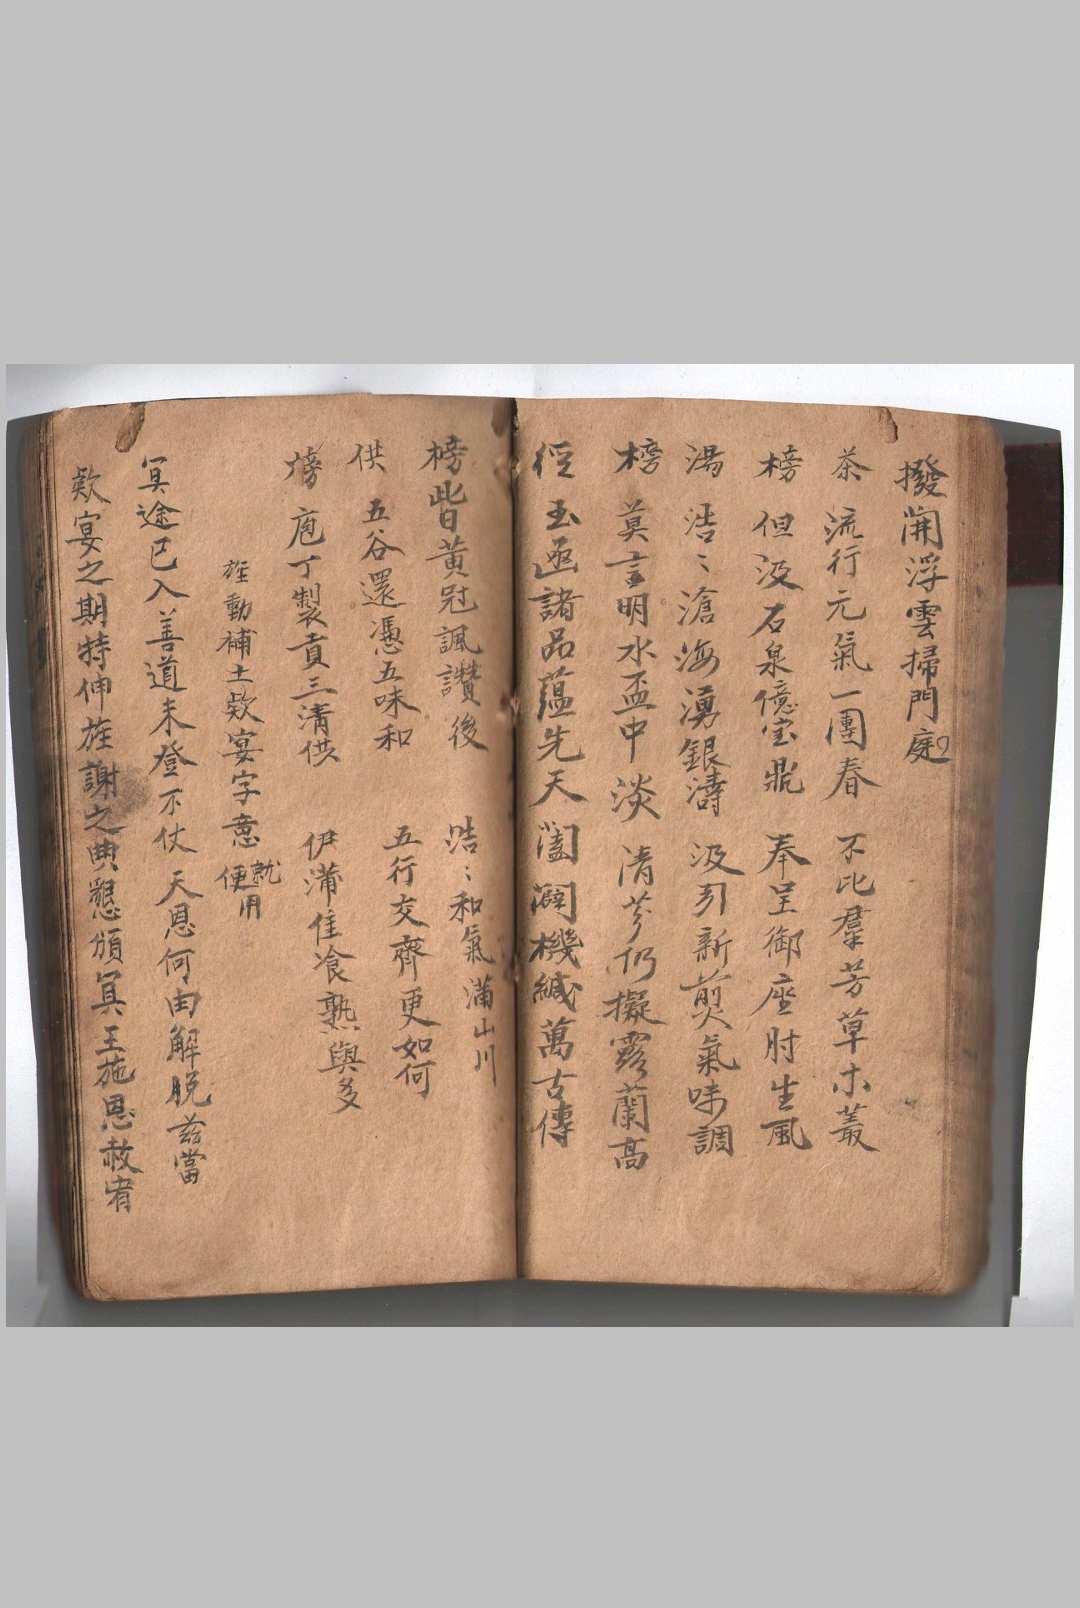 撥開浮雲掃門庭
茶 流行元氣一團春 不比羣芳草木叢
榜 但汲石泉億宝鼎 奉呈御座肘生風
湯 浩〻滄海湧銀濤 汲引新煎氣味調
榜 莫言明水盃中淡 清芬仍擬露蘭高
經 玉函諸品蘊先天 闔闢機緘萬古傳
榜 皆黃冠諷讚後 浩〻和氣滿山川
供 五谷還憑五味和 五行交齊更如何
榜 庖丁製貢三清供 伊蒲佳飡熟與多
旌動補土欵宴字意就便用
冥途已入善道未登不仗天恩何由解脱兹當
欵宴之期特伸旌謝之典懇頒冥王施恩赦宥